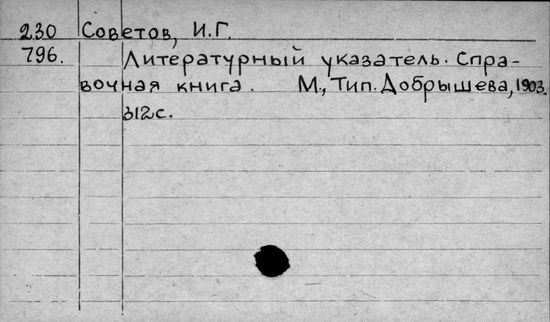 230 Советов, И.Г.
796. Литературный указатель. Спра-
вочная книга. М., Тип. Добрышева, 1903.
312с.